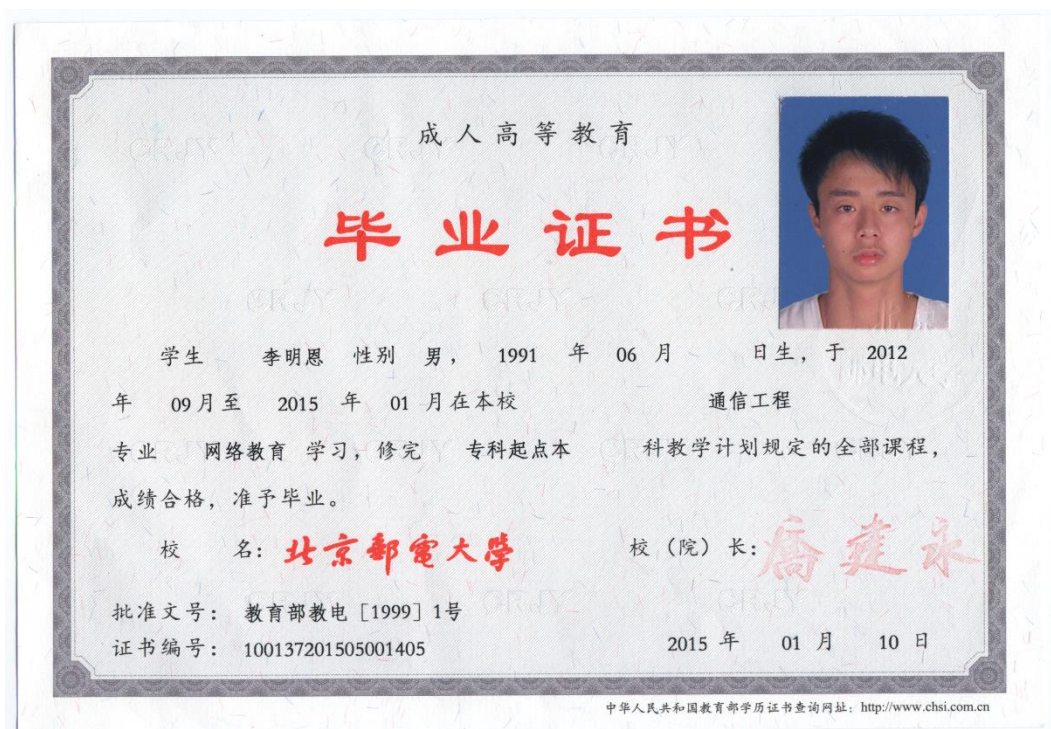 成人高等教育
毕业证书
学生 李明恩 性别 男， 1991 年 06 月 日生，于 2012
年 09月至 2015 年 01 月在本校 通信工程
专业 网络教育 学习，修完 专科起点本 科教学计划规定的全部课程，
成绩合格，准予毕业。
校 名：北京郵電大學 校（院）长：乔建永
批准文号： 教育部教电［1999］1号
证书编号： 100137201505001405 2015 年 01 月 10 日
中华人民共和国教育部学历证书查询网址：http://www.chsi.com.cn